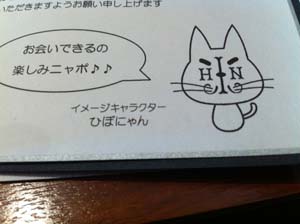 いただきますようお願い申し上げます
お会いできるの
楽しみニャポ♪♪
H N
イメージキャラクター
ひぽにゃん